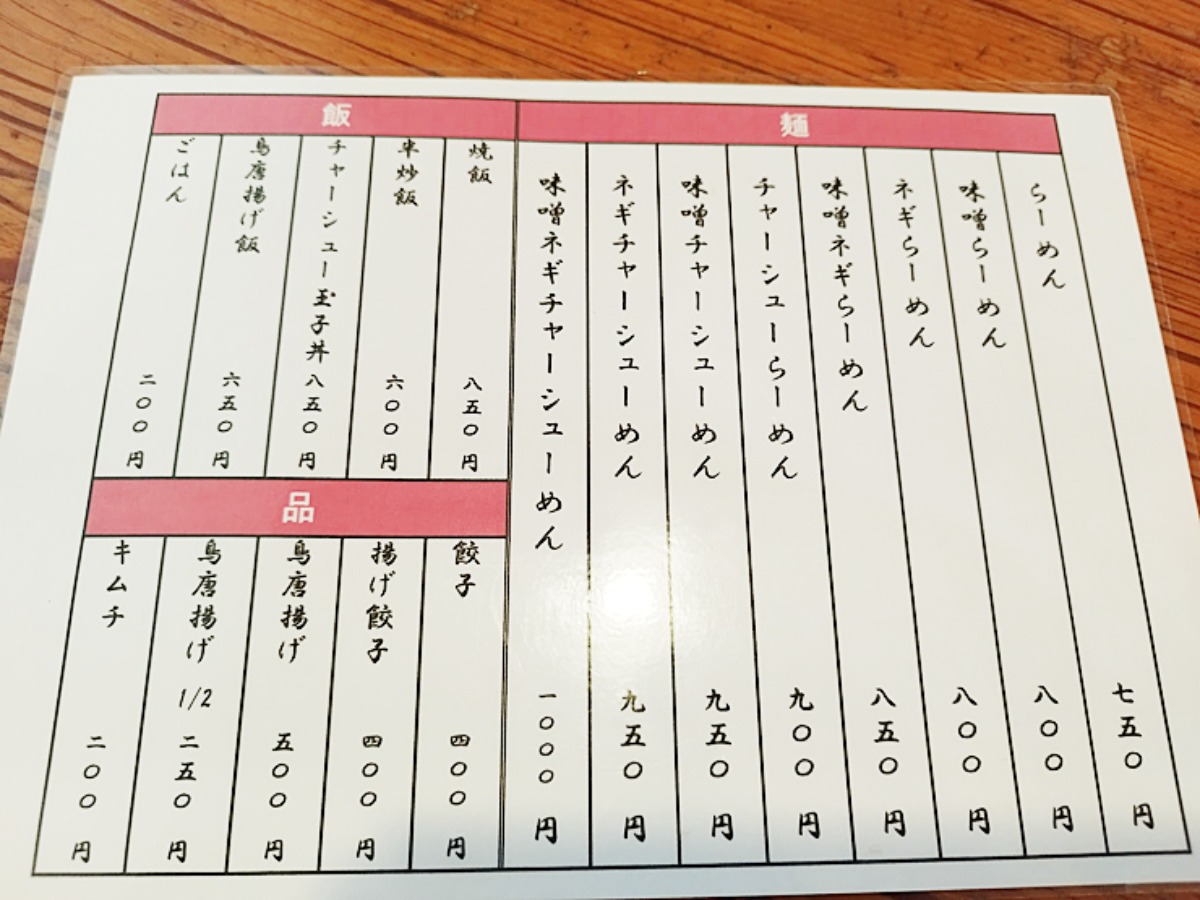 麺
らーめん 七五〇円
味噌らーめん 八〇〇円
ネギらーめん 八〇〇円
味噌ネギらーめん 八五〇円
チャーシューらーめん 九〇〇円
味噌チャーシューめん 九五〇円
ネギチャーシューめん 九五〇円
味噌ネギチャーシューめん 一〇〇〇円
飯
焼飯 八五〇円
半炒飯 六〇〇円
チャーシュー玉子丼 八五〇円
鳥唐揚げ飯 六五〇円
ごはん 二〇〇円
品
餃子 四〇〇円
揚げ餃子 四〇〇円
鳥唐揚げ 五〇〇円
鳥唐揚げ 1/2 二五〇円
キムチ 二〇〇円